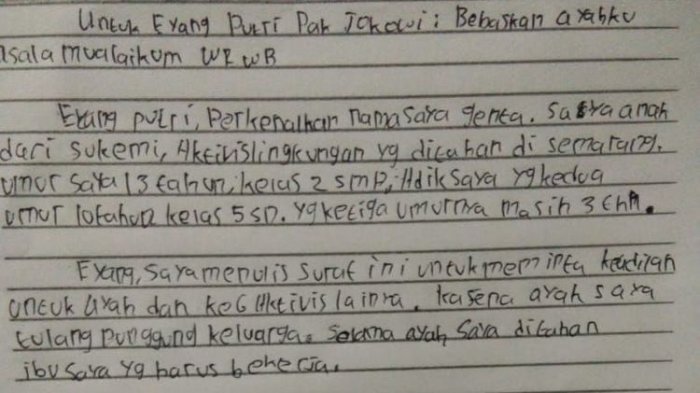 Untuk Eyang Putri Pak Jokowi : Bebaskan ayahku
Asalamualaikum WR WB
Eyang putri, Perkenalkan nama saya Genta. Saya anak
dari sukemi, Aktivis lingkungan yg ditahan di semarang.
umur saya 13 tahun, kelas 2 smp, Adik saya yg kedua
umur 10 tahun kelas 5 SD. yg ketiga umurnya masih 3 thn.
Eyang, saya menulis surat ini untuk meminta keadilan
untuk ayah dan ke6 Aktivis lainya. karena ayah saya
tulang punggung keluarga. Selama ayah saya ditahan
ibu saya yg harus bekerja.